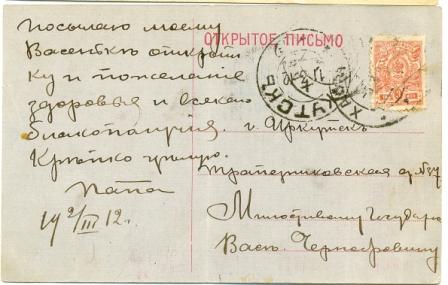 посылаю моему
Васеньке открыт
ку и пожелание
здоровья и всякаго
благополучия.
Крѣпко целую.
Папа
19 2/III 12 г.
ОТКРЫТОЕ ПИСЬМО
г. Иркутскъ
Трапезниковская д. №37
Милостивому Государю
Васѣ